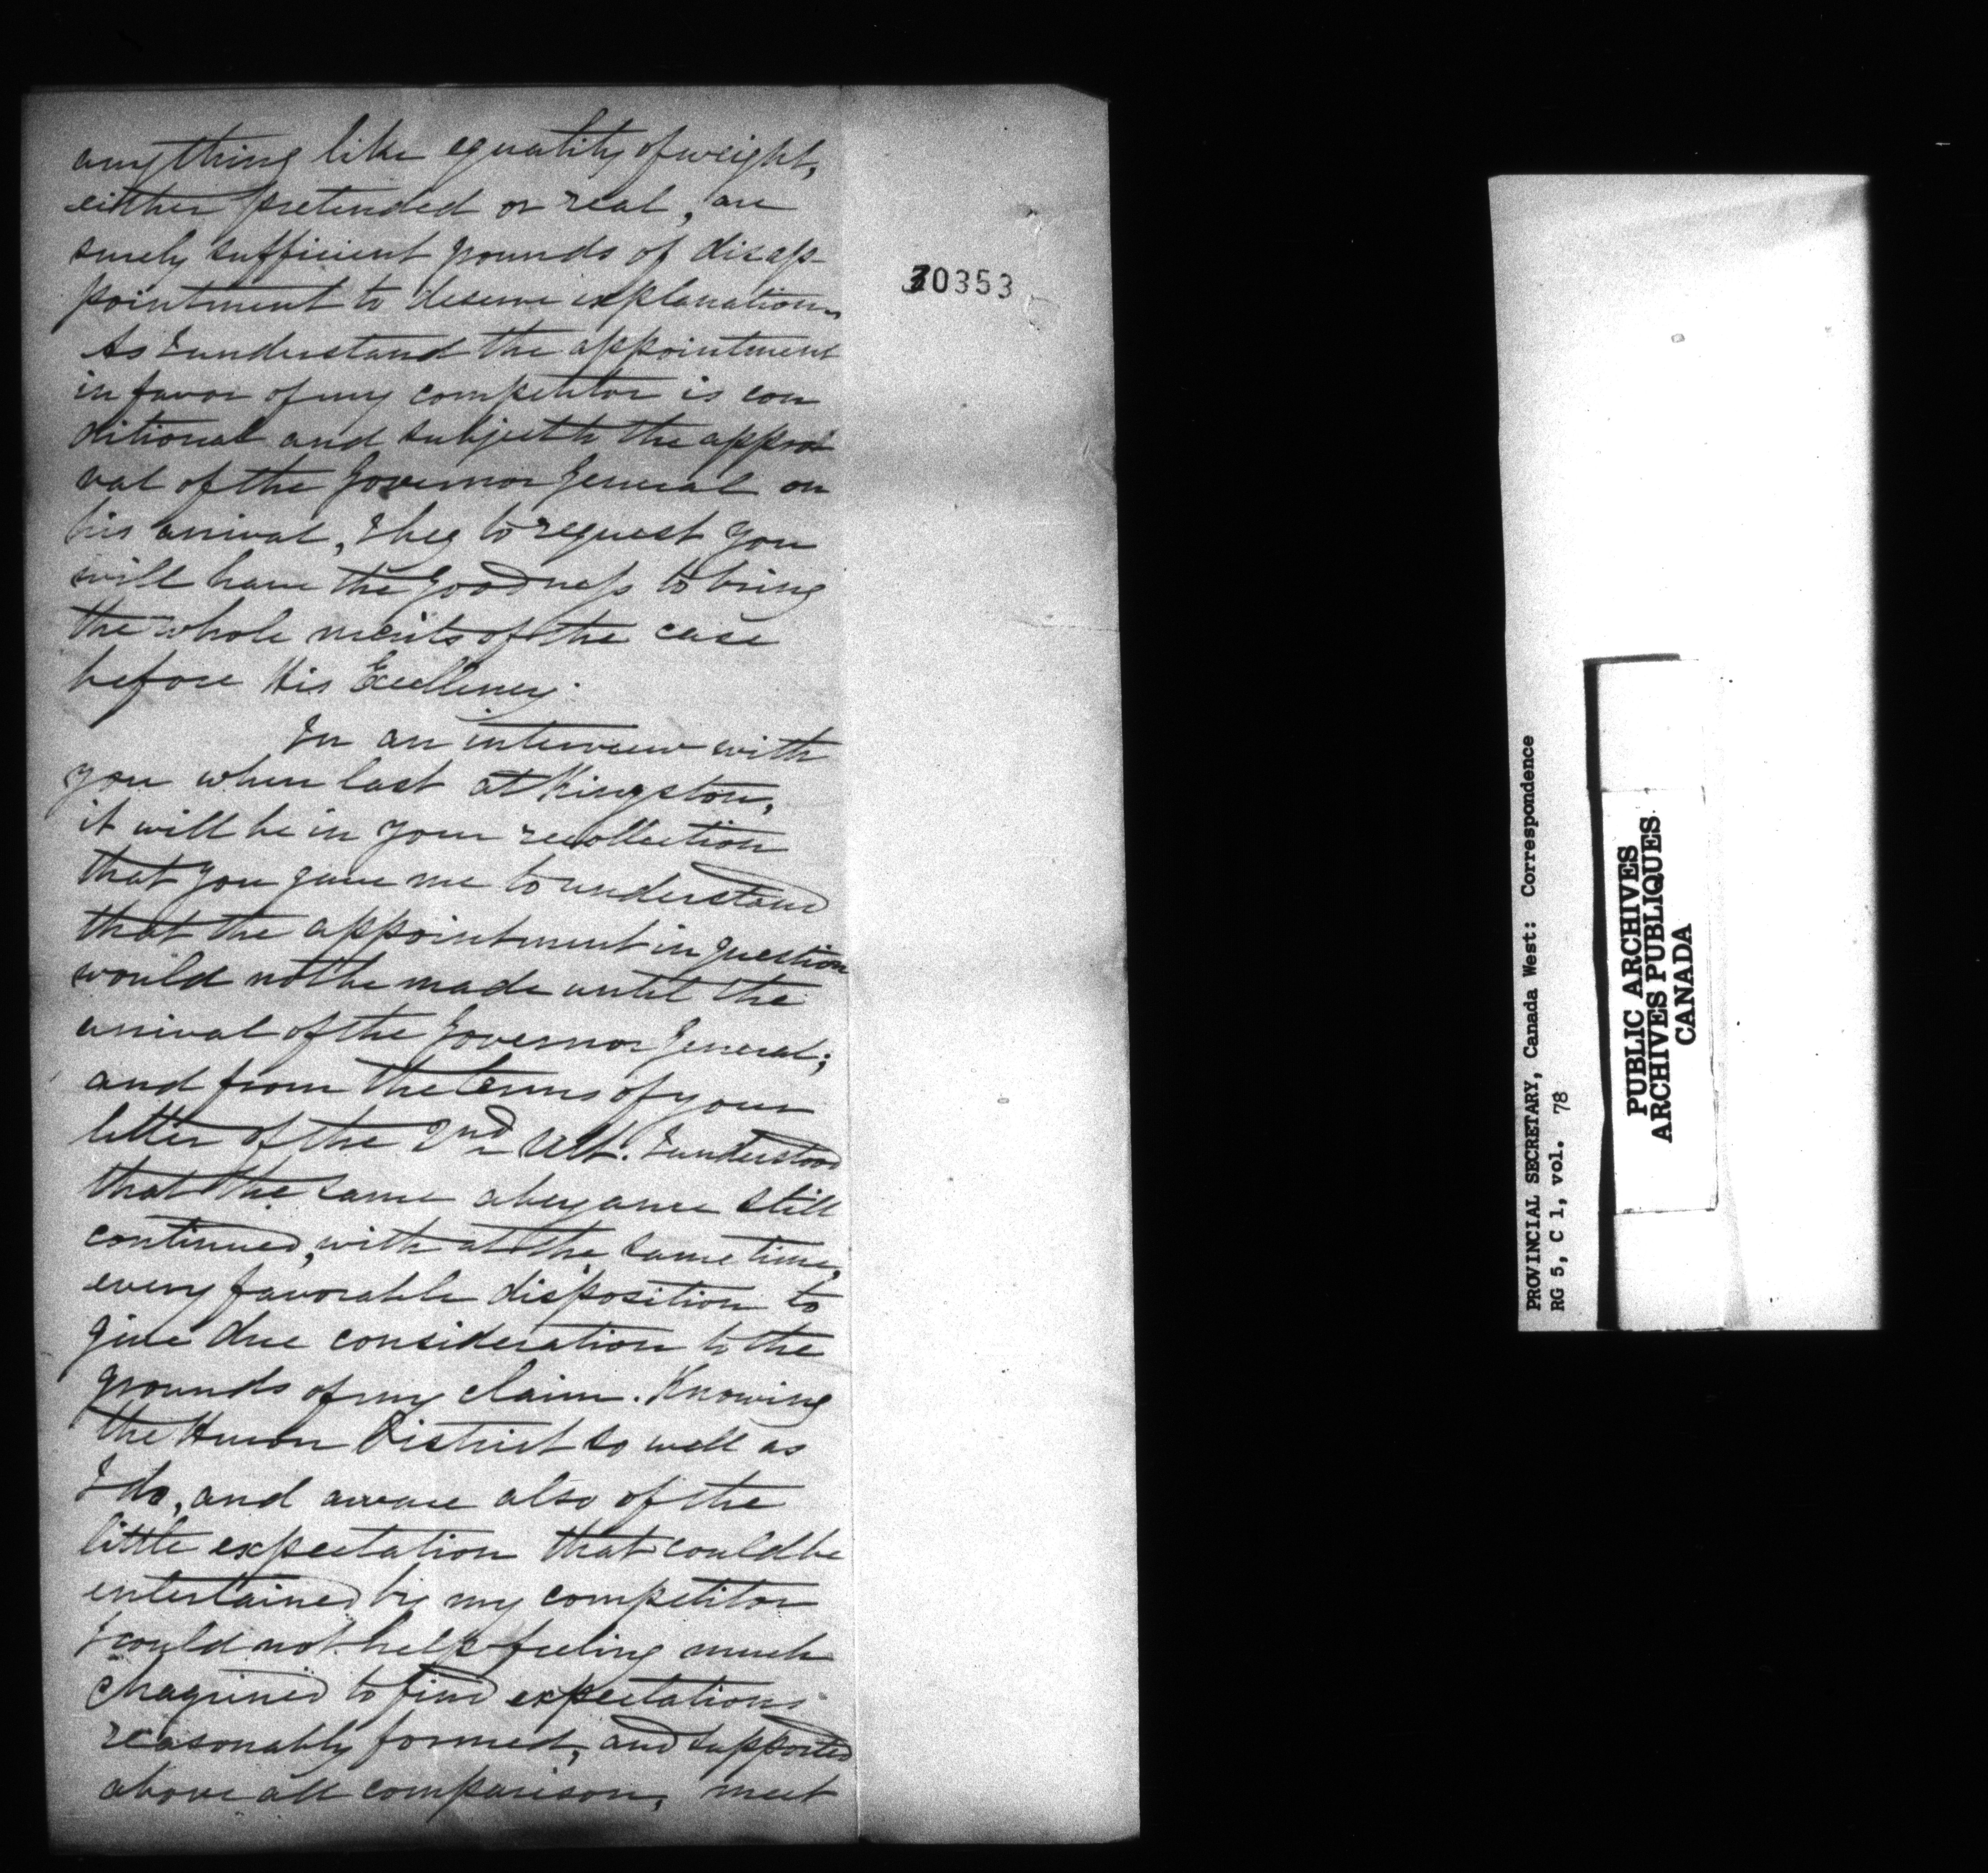 anything like equality of weight,
either pretended or real, are
surely sufficient grounds of disap-
pointment to deserve explanation.
As I understand the appointment
in favor of my competitor is con
ditional and subject to the appro
val of the Governor General on
his arrival, I beg to request you
will have the goodness to bring
the whole merits of the case
before His Excellency.
In an interview with
you when last at Kingston,
it will be in your recollection
that you gave me to understand
that the appointment in question
would not be made until the
arrival of the Governor General;
and from the terms of your
letter of the 2nd Ult. I understood
that the same abeyance still
continued, with at the same time,
every favorable disposition to
give due consideration to the
grounds of my claim. Knowing
the Huron District so well as
I do, and aware also of the
little expectation that could be
entertained by my competitor
I could not help feeling much
chagrined to find expectations
reasonably formed, and supported
above all comparison, meet
30353
PROVINCIAL SECRETARY, Canada West: Correspondence
RG 5, C 1, vol. 78
PUBLIC ARCHIVES
ARCHIVES PUBLIQUES
CANADA